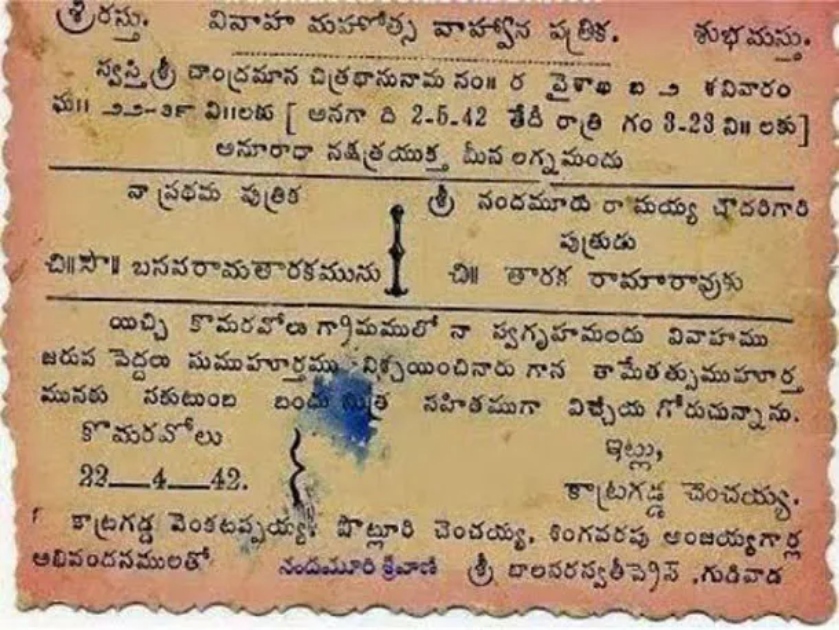 శ్రీరస్తు. వివాహ మహోత్స వాహ్వాన పత్రిక. శుభమస్తు.
స్వస్తిశ్రీ చాంద్రమాన చిత్రభానునామ సం॥ ర వైశాఖ బ ౨ శనివారం
ఘ॥ ౨౨-౩౯ వి॥లకు [ అనగా ది 2-5-42 తేదీ రాత్రి గం 3-23 ని॥ లకు]
అనూరాధా నక్షత్రయుక్త మీన లగ్నమందు
నా ప్రథమ పుత్రిక
శ్రీ నందమూరు రామయ్య చౌదరిగారి
పుత్రుడు
చి॥సౌ॥ బసవరామతారకమును
చి॥ తారక రామారావుకు
యిచ్చి కొమరవోలు గ్రామములో నా స్వగృహమందు వివాహము
జరుప పెద్దలు సుముహూర్తము నిశ్చయించినారు గాన తామేతత్సుముహూర్త
మునకు సకుటుంబ బంధు మిత్ర సహితముగా విచ్చేయ గోరుచున్నాను.
కొమరవోలు
22—4—42.
ఇట్లు,
కాట్రగడ్డ చెంచయ్య.
కాట్రగడ్డ వెంకటప్పయ్య, పొట్లూరి చెంచయ్య, శింగవరపు అంజయ్యగార్ల
అభివందనములతో నందమూరి శ్రీవాణి శ్రీ బాలసరస్వతీప్రెస్ ,గుడివాడ